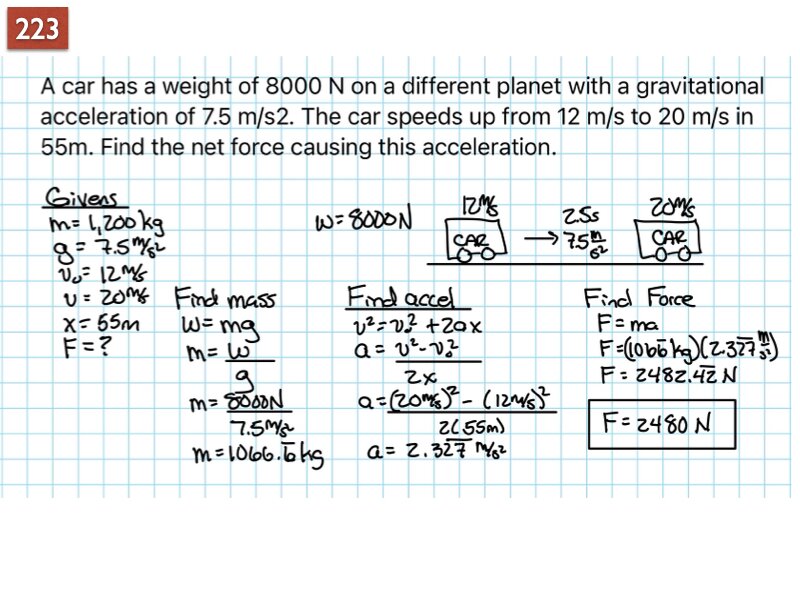 223
A car has a weight of 8000 N on a different planet with a gravitational
acceleration of 7.5 m/s2. The car speeds up from 12 m/s to 20 m/s in
55m. Find the net force causing this acceleration.
Givens
m= 1,200 kg
g = 7.5 m/s2
v₀= 12 m/s
v = 20 m/s
x= 55m
F = ?
W= 8000N
12 m/s
CAR
2.5s
→ 7.5 m/s2
20 m/s
CAR
Find mass
W= mg
m= W/g
m= 8000N/7.5 m/s2
m = 1066.6̅ kg
Find accel
v² = v₀² + 2ax
a = v² - v₀²/2x
a = (20 m/s)² - (12 m/s)²/2(55m)
a = 2.32̅7̅ m/s2
Find Force
F = ma
F = (1066̅ kg)(2.32̅7̅ m/s²)
F = 2482.4̅2̅ N
F = 2480 N